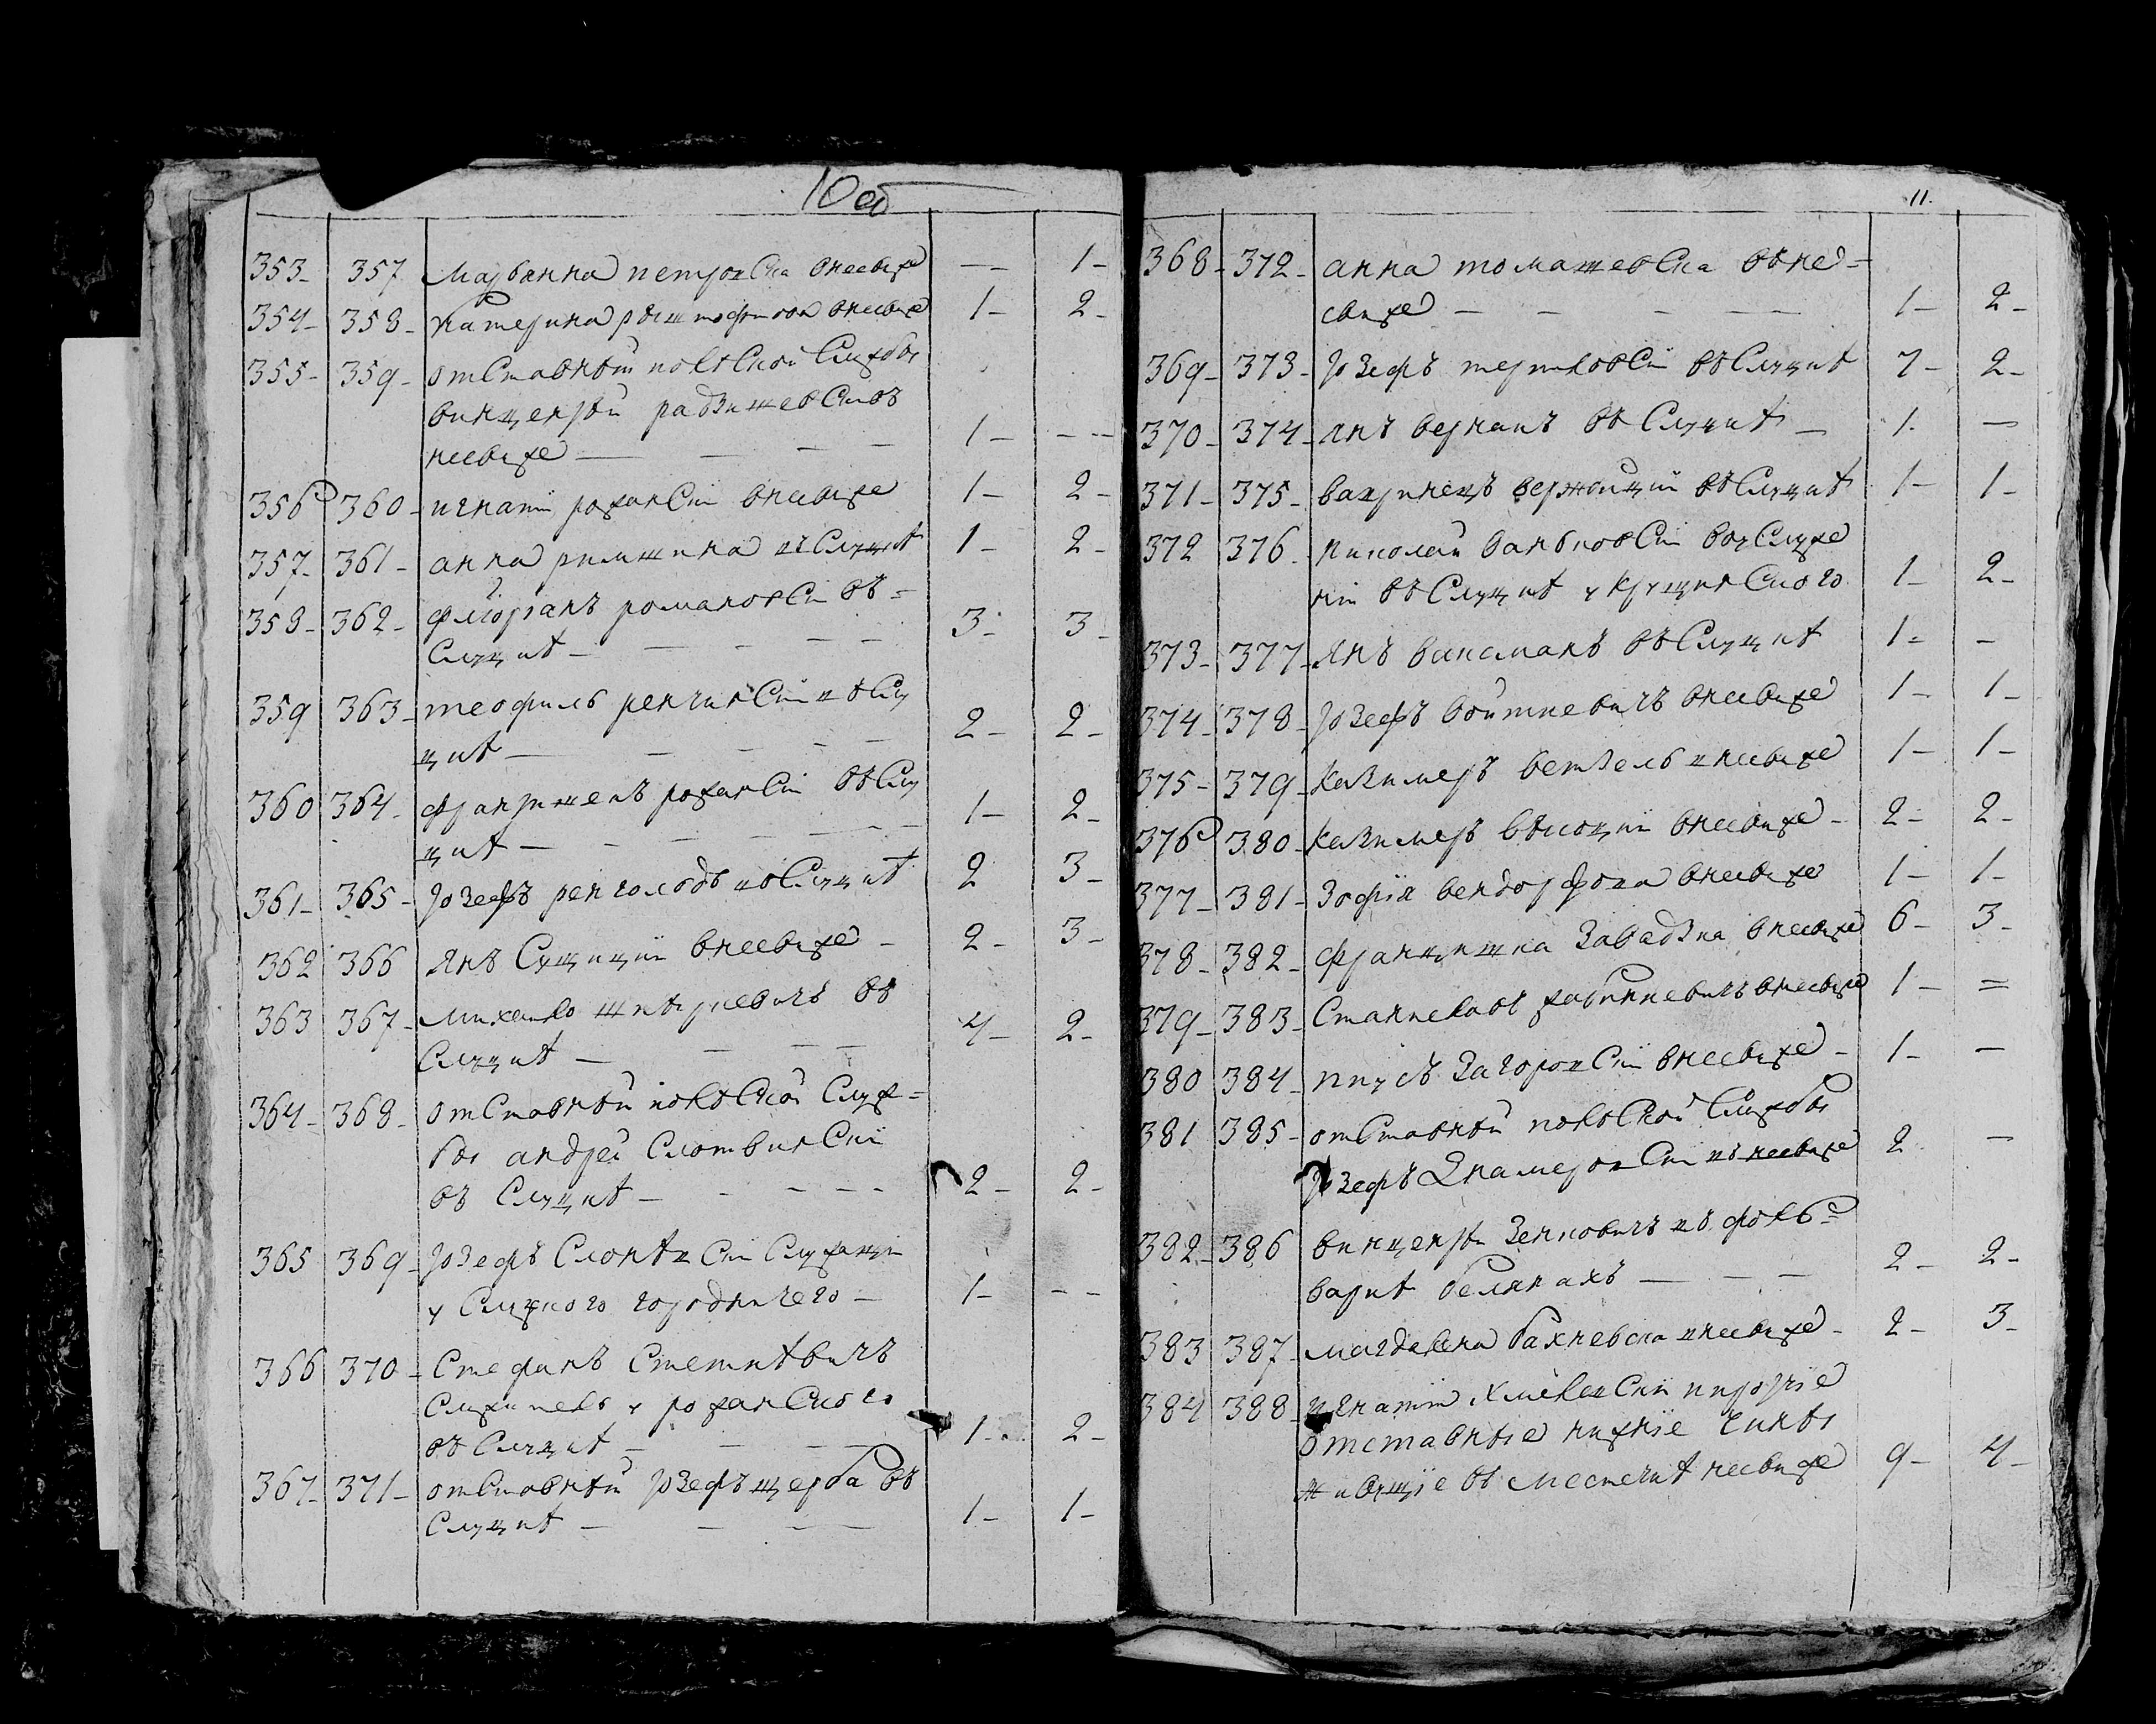 10 об
353 - 357 Марьянна петровска внесвиже — 1 -
354 - 358 - Катерина внесвиже 1 - 2 -
355 - 359 - отставный полской службы
винцентый радзишевски въ
несвиже — — — 1 - - -
356 360 - игнатiй ружанскiй внесвиже 1 - 2 -
357 - 361 - анна римшина въ Слуцкѣ 1 - 2 -
358 - 362 - флiорианъ романовскiй въ =
Слуцкѣ — — — 3 - 3 -
359 363 - теофиль ренчинскiй въ Слу
цкѣ — — — — 2 - 2 -
360 364 - францишекъ рожанскiй въ Слу
цкѣ — — — — 1 - 2 -
361 - 365 - Юзефъ ренгольдъ въ Слуцкѣ 2 3 -
362 366 Янъ Сущицкiй внесвиже - 2 - 3 -
363 367 - Михайло въ
Слуцкѣ — — — 4 - 2 -
364 - 368 - отставный полской Служ =
бы андрей Слотвинскiй
въ Слуцкѣ — — — 2 - 2 -
365 369 - Юзефъ Слонѣвскiй Служащiй
у Слуцкого городничего — 1 - - -
366 370 - Стефанъ Стеткѣвичъ
Служитель у рожанского
въ Слуцкѣ — — — 1 - 2 -
367 - 371 - отставный Юзефъ щерба въ
Слуцкѣ — — — 1 - 1 -
11.
368 - 372 - анна томашевска въ нес =
свиже — — — — 1 - 2 -
369 - 373 - Юзефъ терпиловскiй въ Слуцкѣ 7 - 2 -
370 - 374 - Янъ верканъ въ Слуцкѣ — 1. —
371 - 375 - вавринецъ вержбицкiй въ Слуцкѣ 1 - 1 -
372 376 - Николай ваньковскiй вуслуже
нiи въ Слуцкѣ у Крушинского 1 - 2 -
373 - 377 - Янъ ваксманъ въ Слуцкѣ 1 - -
374 - 378 - Юзефъ войткевичъ внесвиже 1 - 1 -
375 - 379 - Казимеръ ветзель внесвиже 1 - 1 -
376 380 - Казимеръ высоцкiй внесвиже - 2 - 2 -
377 - 381 - Зофiя вендорфова внесвиже 1 - 1 -
378 - 382 - францишка Завадзка внесвиже 6 - 3 -
379 - 383 - Станиславъ внесвиже 1 - =
380 384 - Загоровскiй внесвиже - 1 - —
381 385 - отставный полской Службы
Юзефъ Знамеровскiй въ несвиже 2 —
382 - 386 винценты Зенковичъ въ фоль =
варкѣ белянахъ — — — 2 - 2 -
383 387 - магдалена бахневска внесвиже - 2 - 3 -
384 388 - игнатiй Хмелевскiй и прочiе
отставные нижнiе чины
живущiе въ местечкѣ несвиже 9 - 4 -